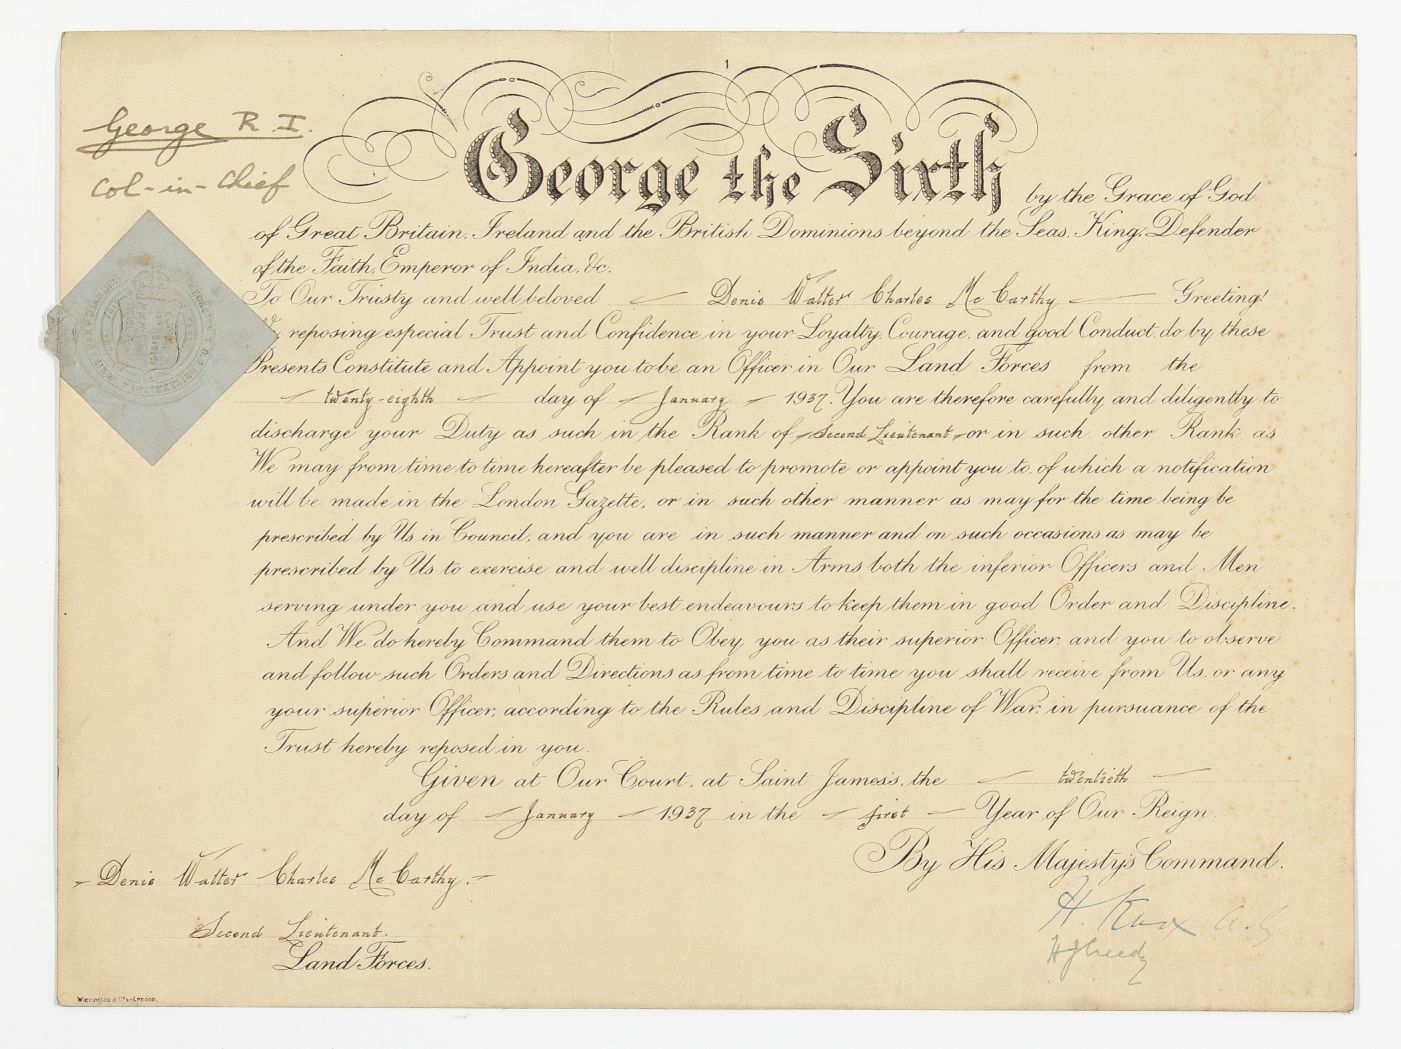 George R. I.
Col-in-Chief
George the Sixth by the Grace of God
of Great Britain, Ireland and the British Dominions beyond the Seas, King, Defender
of the Faith, Emperor of India, &c.
To Our Trusty and well beloved — Denis Walter Charles McCarthy — Greeting!
reposing especial Trust and Confidence in your Loyalty, Courage, and good Conduct, do by these
Presents Constitute and Appoint you to be an Officer in Our Land Forces from the
— twenty-eighth — day of — January — 1937. You are therefore carefully and diligently to
discharge your Duty as such in the Rank of — Second Lieutenant — or in such other Rank as
We may from time to time hereafter be pleased to promote or appoint you to, of which a notification
will be made in the London Gazette, or in such other manner as may for the time being be
prescribed by Us in Council, and you are in such manner and on such occasions as may be
prescribed by Us to exercise and well discipline in Arms both the inferior Officers and Men
serving under you and use your best endeavours to keep them in good Order and Discipline.
And We do hereby Command them to Obey you as their superior Officer, and you to observe
and follow such Orders and Directions as from time to time you shall receive from Us, or any
your superior Officer, according to the Rules and Discipline of War, in pursuance of the
Trust hereby reposed in you.
Given at Our Court, at Saint James's, the — twentieth —
day of — January — 1937 in the — first — Year of Our Reign.
By His Majesty's Command.
— Denis Walter Charles McCarthy. —
Second Lieutenant.
Land Forces.
H. Knox A.G.
H J Creedy
Warrington & Co. London.